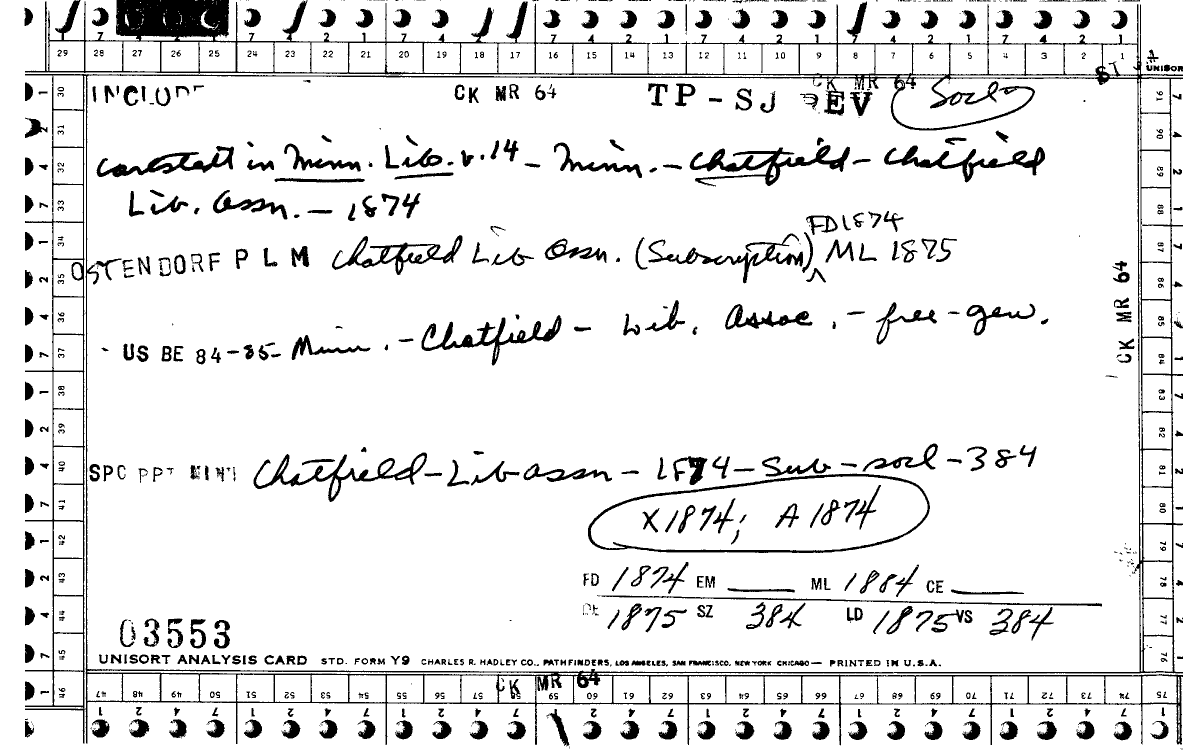 7 4 2 1 7 4 2 1 7 4 2 1 7 4 2 1 7 4 2 1
29 28 27 26 25 24 23 22 21 20 19 18 17 16 15 14 13 12 11 10 9 8 7 6 5 4 3 2 1
UNISORT
INCLUDE CK MR 64 TP-SJ REV CK MR 64 Socl
in Minn. Lib. v.14 - Minn. - Chatfield - Chatfield
Lib. Assn. - 1874
FD1874
OSTENDORF P L M Chatfield Lib Assn. (Subscription) ^ ML 1875
- US BE 84-85- Minn. - Chatfield - Lib. Assoc. - free - gen.
CK MR 64
SPC PPT MINN Chatfield - Lib assn - 1874 - Sub - socl - 384
X1874; A 1874
FD 1874 EM ____ ML 1884 CE ____
DE 1875 SZ 384 LD 1875 VS 384
03553
UNISORT ANALYSIS CARD STD. FORM Y9 CHARLES R. HADLEY CO., PATHFINDERS, LOS ANGELES, SAN FRANCISCO, NEW YORK CHICAGO — PRINTED IN U.S.A.
CK MR 64
30 31 32 33 34 35 36 37 38 39 40 41 42 43 44 45 46
91 90 89 88 87 86 85 84 83 82 81 80 79 78 77 76
47 48 49 50 51 52 53 54 55 56 57 58 59 60 61 62 63 64 65 66 67 68 69 70 71 72 73 74 75